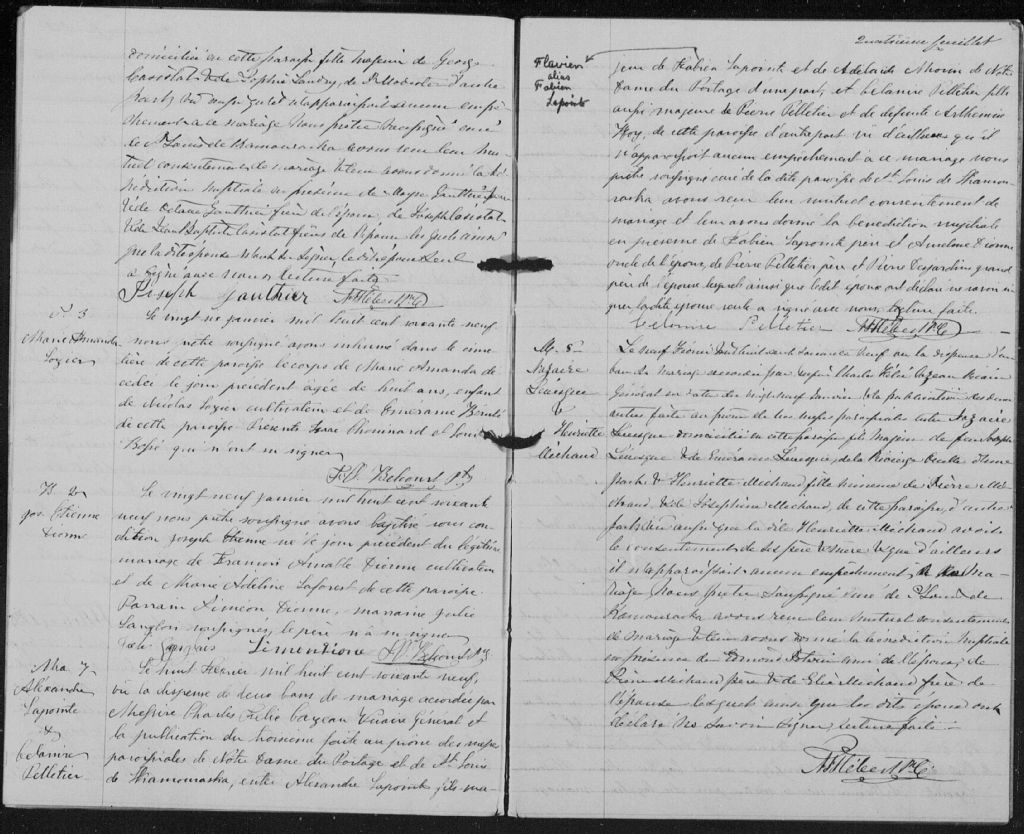 domicilié en cette paroisse fille majeure de George
de Sophie Landry, de St Modeste d'autre
part, vu aussi qu'il n'apparaissait aucun empê-
chement à ce mariage Nous prêtre soussigné curé
de St Louis de Kamouraska avons reçu leur mu-
tuel consentement de mariage & leur avons donné la bé-
nédiction nuptiale en présence de Gauthier père
& de Octave Gauthier frère de l'époux, de Joseph
& de Jean Baptiste frères de l'épouse les quels ainsi
que la dite épouse n'ont su signer, le dit époux seul
a signé avec nous lecture faite
Joseph Gauthier NHébert Ptre C
S. 3
Marie Amanda
Lozier
Le vingt ne janvier mil huit cent soixante neuf
nous prêtre soussigné avons inhumé dans le cime-
tière de cette paroisse le corps de Marie Amanda dé-
cédée le jour précédent âgée de huit ans, enfant
de Nicolas Lozier cultivateur et de Emerame Benoît
de cette paroisse Présents Isaie Chouinard et Louis
Bossé qui n'ont su signer
F.P. Belcourt Ptre
B. 20
Jos. Etienne
Dionne
Le vingt neuf janvier mil huit cent soixante
neuf nous prêtre soussigné avons baptisé sous con-
dition Joseph Etienne né le jour précédent du légitime
mariage de Francois Amable Dionne cultivateur
et de Marie Adeline Laforest de cette paroisse.
Parrain Siméon Dionne, marraine Julie
Langlois soussignés, le père n'a su signer
Simeon Dione F.P. Belcourt Ptre
Ma. 7
Alexandre
Lapointe
&
Belanire
Pelletier
Le huit février mil huit cent soixante neuf,
vu la dispense de deux bans de mariage accordée par
Messire Charles Félix Cazeau Vicaire Général et
la publication du troisième faite au prône des messes
paroissiales de Notre Dame du Portage et de St. Louis
de Kamouraska, entre Alexandre Lapointe fils ma-
Quatrième feuillet
Flavien
alias
Fabien
Lapointe
jeur de Fabien Lapointe et de Adelaide Morin de Notre
Dame du Portage d'une part, et Belanire Pelletier fille
aussi majeure de Pierre Pelletier et de défunte Arthemise
Roy, de cette paroisse d'autre part vu d'ailleurs qu'il
n'apparaissoit aucun empêchement à ce mariage nous
prêtre soussigné curé de la dite paroisse de St. Louis de Kamou-
raska avons reçu leur mutuel consentement de
mariage et leur avons donné la bénédiction nuptiale
en présence de Fabien Lapointe père et Dionne
oncle de l'époux, de Pierre Pelletier père et Pierre Desjardins grand
père de l'épouse lesquels ainsi que le dit époux ont déclaré ne savoir si-
gner, la dite épouse seule a signé avec nous, lecture faite.
Belanire Pelletier NHébert Ptre C
M. 8
Nazaire
Lévesque
&
Henriette
Michaud
Le neuf Février mil huit cent soixante neuf vu la dispense d'un
ban de mariage accordée par Messire Charles Félix Cazeau Vicaire
Général en date du vingt neuf Janvier & la publication des deux
autres faite au prône de nos messes paroissiales entre Nazaire
Lévesque domicilié en cette paroisse fils majeur de feu Joseph
Lévesque & de Emérance Lévesque, de la Rivière Ouelle d'une
part & Henriette Michaud fille mineure de Pierre Mi-
chaud & de Joséphine Michaud, de cette paroisse, d'autre
part vu aussi que la dite Henriette Michaud avait
le consentement de ses père & mère & que d'ailleurs
il n'apparaissait aucun empêchement à ce ma-
riage Nous prêtre soussigné curé de St Louis de
Kamouraska avons reçu leur mutuel consentement
de mariage & leur avons donné la bénédiction nuptiale
en présence de Edmond ami de l'époux, de
Pierre Michaud père & de Elie Michaud frère de
l'épouse lesquels ainsi que les dits époux ont
déclaré ne savoir signer, lecture faite.
NHébert Ptre C